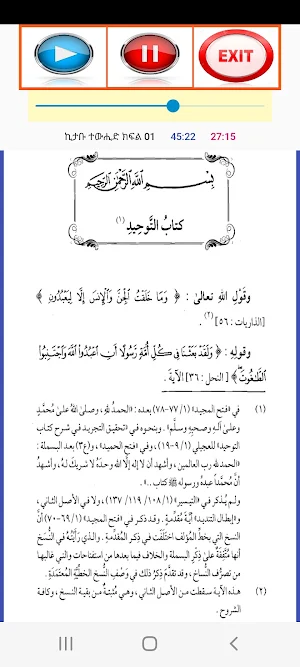 EXIT
ኪታቡ ተውሒድ ክፍል 01 45:22 27:15
بِسْمِ اللَّهِ الرَّحْمَٰنِ الرَّحِيمِ
كتابُ التَّوحيدِ (١)
وقَوْلِ اللهِ تعالىٰ: ﴿ وَمَا خَلَقْتُ الْجِنَّ وَالْإِنسَ إِلَّا لِيَعْبُدُونِ ﴾
[الذاريات: ٥٦] (٢).
وقولِهِ: ﴿ وَلَقَدْ بَعَثْنَا فِي كُلِّ أُمَّةٍ رَّسُولًا أَنِ اعْبُدُوا اللَّهَ وَاجْتَنِبُوا
الطَّاغُوتَ ﴾ [النحل: ٣٦] الآيةَ.
(١) في «فتح المجيد» (١/ ٧٧-٧٨) بعده: «الحمدُ للهِ، وصلىٰ اللهُ علىٰ مُحمَّدٍ
وعلىٰ آلِهِ وصحبِهِ وسلَّم». وبنحوه في «تحقيق التجريد في شرح كتاب
التوحيد» للعجيلي (١/ ٩-١٩)، وفي «فتح الحميد»، و(ع٣) بعد البسملة:
«الحمد لله رب العالمين، وأشهد أن لا إله إلَّا الله وحدَهُ لا شريكَ لهُ، وأشهدُ
أنَّ محمَّداً عبدُه ورسولُه ﷺ كتاب..».
ولم يُذكر في «التيسير» (١/ ١٠٨، ١١٩/ ١٣٧)، ولا في الأصل الثاني،
و«إبطال التنديد» أيَّةُ مُقدِّمةٍ. وقد ذكر في «فتح المجيد» (١/ ٦٩-٧٠) أنَّ
النسخ التي بخطِّ المؤلف اختلَفَت في ذِكرِ المُقدِّمةِ. والذي رأيتُهُ في النُّسَخِ
أنها مُتَّفِقَةٌ علىٰ ذِكْرِ البسملةِ والخلاف فيما بعدها من استفتاحات والتي غالبها
من تصرُّف النُّساخ، وقد تقدَّم ذِكرُ ذلك في وَصْفِ النُّسخِ الخطِّيَّةِ المُعتمَدَةِ.
(٢) هذه الآية سقطت من الأصل الثاني، وهي مُثبتةٌ من بقية النسخ، وكافة
الشروح.